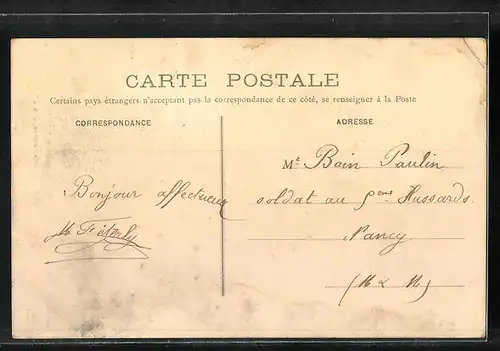 CARTE POSTALE
Certains pays étrangers n'acceptant pas la correspondance de ce côté, se renseigner à la Poste
CORRESPONDANCE
ADRESSE
Bonjour affectueux
Mr Bain Paulin
soldat au 5eme Hussards
Nancy
(M & M)